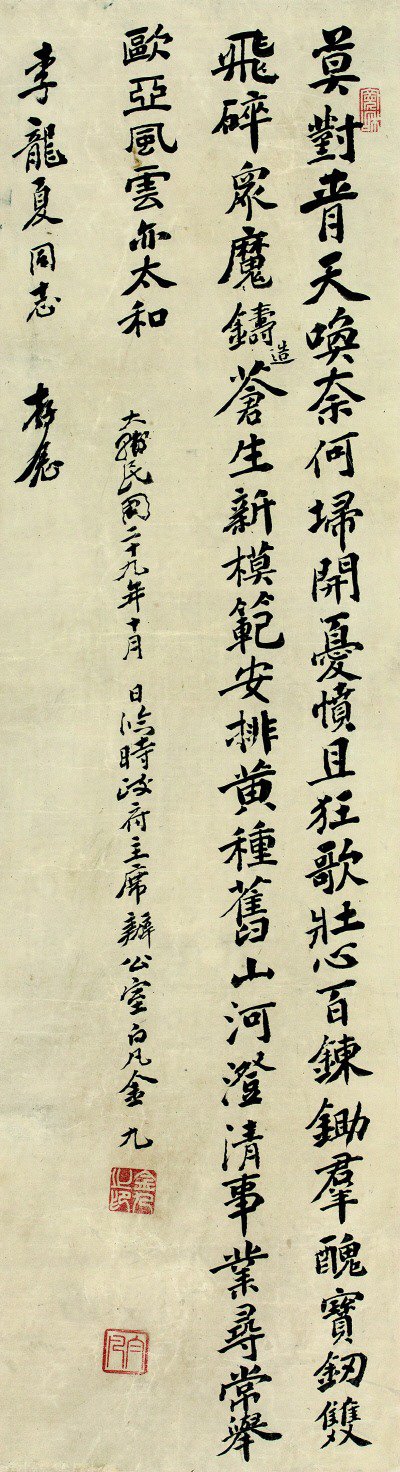 莫對青天喚奈何埽開憂憤且狂歌壯心百鍊鋤羣醜寶劒雙
飛碎眾魔鑄造蒼生新模範安排黄種舊山河澄清事業尋常舉
歐亞風雲亦太和
大韓民國二十九年十月 日臨時政府主席辦公室白凡金九
李龍夏同志 存念
金九之印